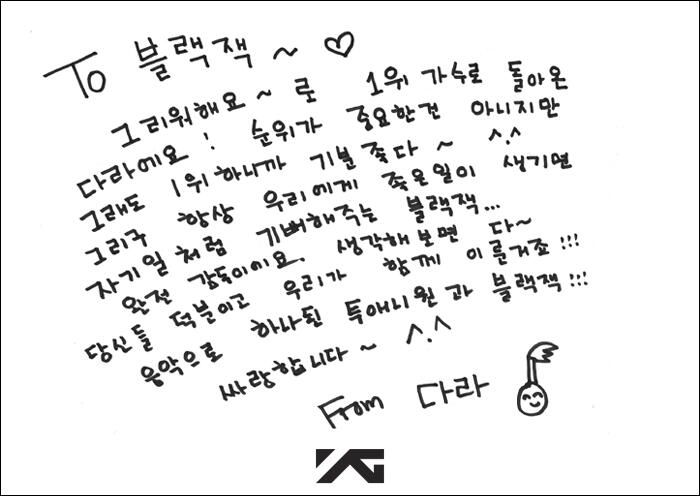 To 블랙잭 ~ ♡
그리워해요 ~ 로 1위 가수로 돌아온
다라에요! 순위가 중요한건 아니지만
그래도 1위 하니까 기분 좋다 ~ ^.^
그리구 항상 우리에게 좋은일이 생기면
자기일처럼 기뻐해주는 블랙잭...
완전 감동이에요. 생각해보면 다~
당신들 덕분이고 우리가 함께 이룬거죠!!!
음악으로 하나된 투애니원과 블랙잭!!!
싸랑합니다 ~ ^.^
From 다라
YG